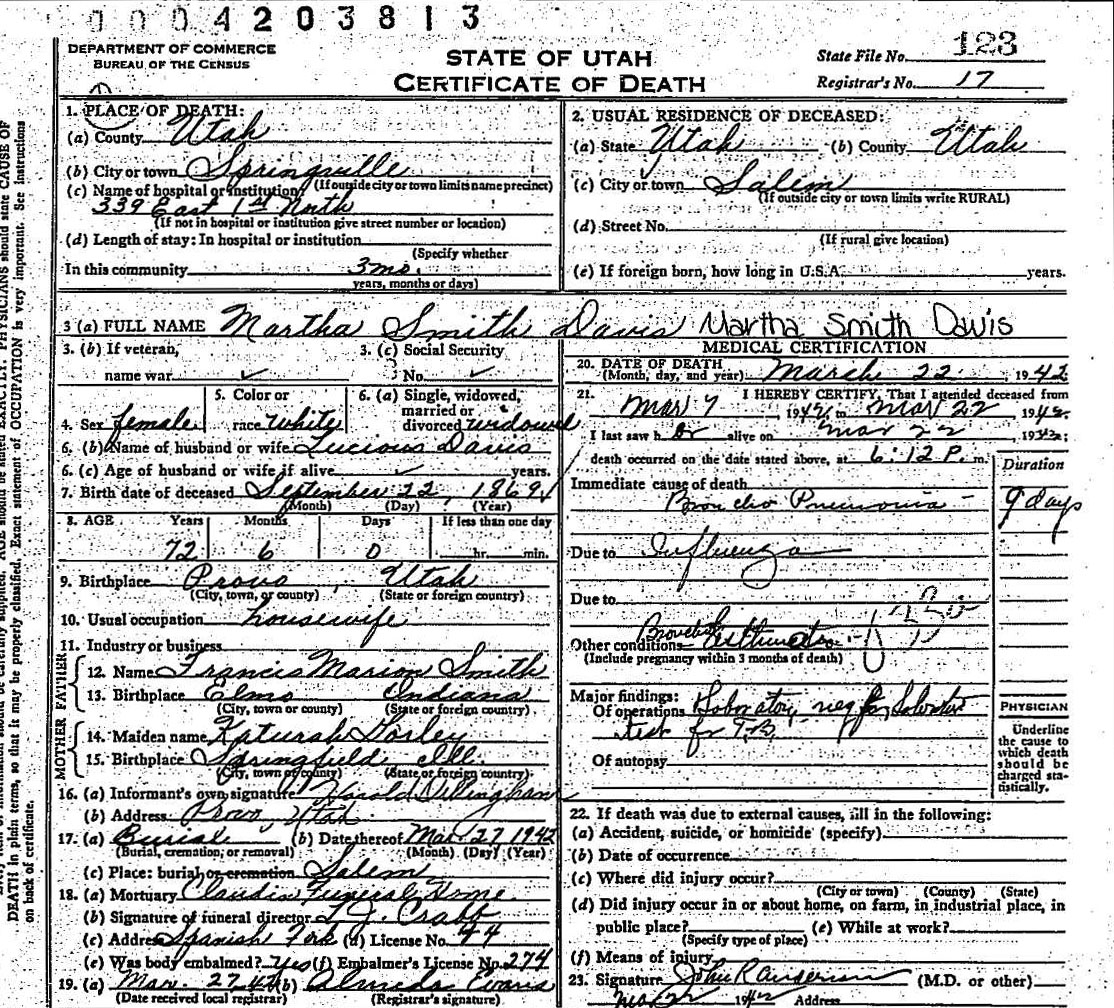 0004203813
DEPARTMENT OF COMMERCE
BUREAU OF THE CENSUS
STATE OF UTAH
CERTIFICATE OF DEATH
State File No. 123
Registrar's No. 17
1. PLACE OF DEATH:
(a) County Utah
(b) City or town Springville
(If outside city or town limits name precinct)
(c) Name of hospital or institution
339 East 1st North
(If not in hospital or institution give street number or location)
(d) Length of stay: In hospital or institution
(Specify whether
In this community 3 mo.
years, months or days)
2. USUAL RESIDENCE OF DECEASED:
(a) State Utah (b) County Utah
(c) City or town Salem
(If outside city or town limits write RURAL)
(d) Street No.
(If rural give location)
(e) If foreign born, how long in U.S.A. years.
3 (a) FULL NAME Martha Smith Davis Martha Smith Davis
3. (b) If veteran, 3. (c) Social Security
name war ✓ No. ✓
5. Color or 6. (a) Single, widowed,
married or
4. Sex female race White divorced widowed
6. (b) Name of husband or wife Lucious Davis
6. (c) Age of husband or wife if alive ✓ years.
7. Birth date of deceased September 22, 1869
(Month) (Day) (Year)
8. AGE Years Months Days If less than one day
72 6 0 hr. min.
9. Birthplace Provo, Utah
(City, town, or county) (State or foreign country)
10. Usual occupation housewife
11. Industry or business
FATHER
12. Name Francis Marion Smith
13. Birthplace Elmo Indiana
(City, town or county) (State or foreign country)
MOTHER
14. Maiden name Katurah
15. Birthplace Springfield Ill.
(City, town or county) (State or foreign country)
16. (a) Informant's own signature Harold Dillingham
(b) Address Provo, Utah
17. (a) Burial (b) Date thereof Mar 27 1942
(Burial, cremation, or removal) (Month) (Day) (Year)
(c) Place: burial or cremation Salem
18. (a) Mortuary Claudin Funeral Home
(b) Signature of funeral director J. Crabb
(c) Address Spanish Fork (d) License No. 44
(e) Was body embalmed? Yes (f) Embalmer's License No. 274
19. (a) Mar. 27 42 (b) Almeda Evans
(Date received local registrar) (Registrar's signature)
MEDICAL CERTIFICATION
20. DATE OF DEATH
(Month, day, and year) March 22, 1942
21. I HEREBY CERTIFY, That I attended deceased from
Mar 7 1942, to Mar 22 1942.
I last saw h er alive on Mar 22 1942;
death occurred on the date stated above, at 6:12 P. m.
Duration
Immediate cause of death
Broncho Pneumonia 9 days
Due to Influenza
Due to
Other conditions Bronchial
(Include pregnancy within 3 months of death)
Major findings:
Of operations Laboratory neg for
test for T.B.
Of autopsy
PHYSICIAN
Underline
the cause to
which death
should be
charged sta-
tistically.
22. If death was due to external causes, fill in the following:
(a) Accident, suicide, or homicide (specify)
(b) Date of occurrence
(c) Where did injury occur?
(City or town) (County) (State)
(d) Did injury occur in or about home, on farm, in industrial place, in
public place? (e) While at work?
(Specify type of place)
(f) Means of injury
23. Signature John R Anderson (M.D. or other)
1942 Address
AGE should be stated EXACTLY. PHYSICIANS should state CAUSE OF
DEATH in plain terms, so that it may be properly classified. Exact statement of OCCUPATION is very important. See instructions
on back of certificate.